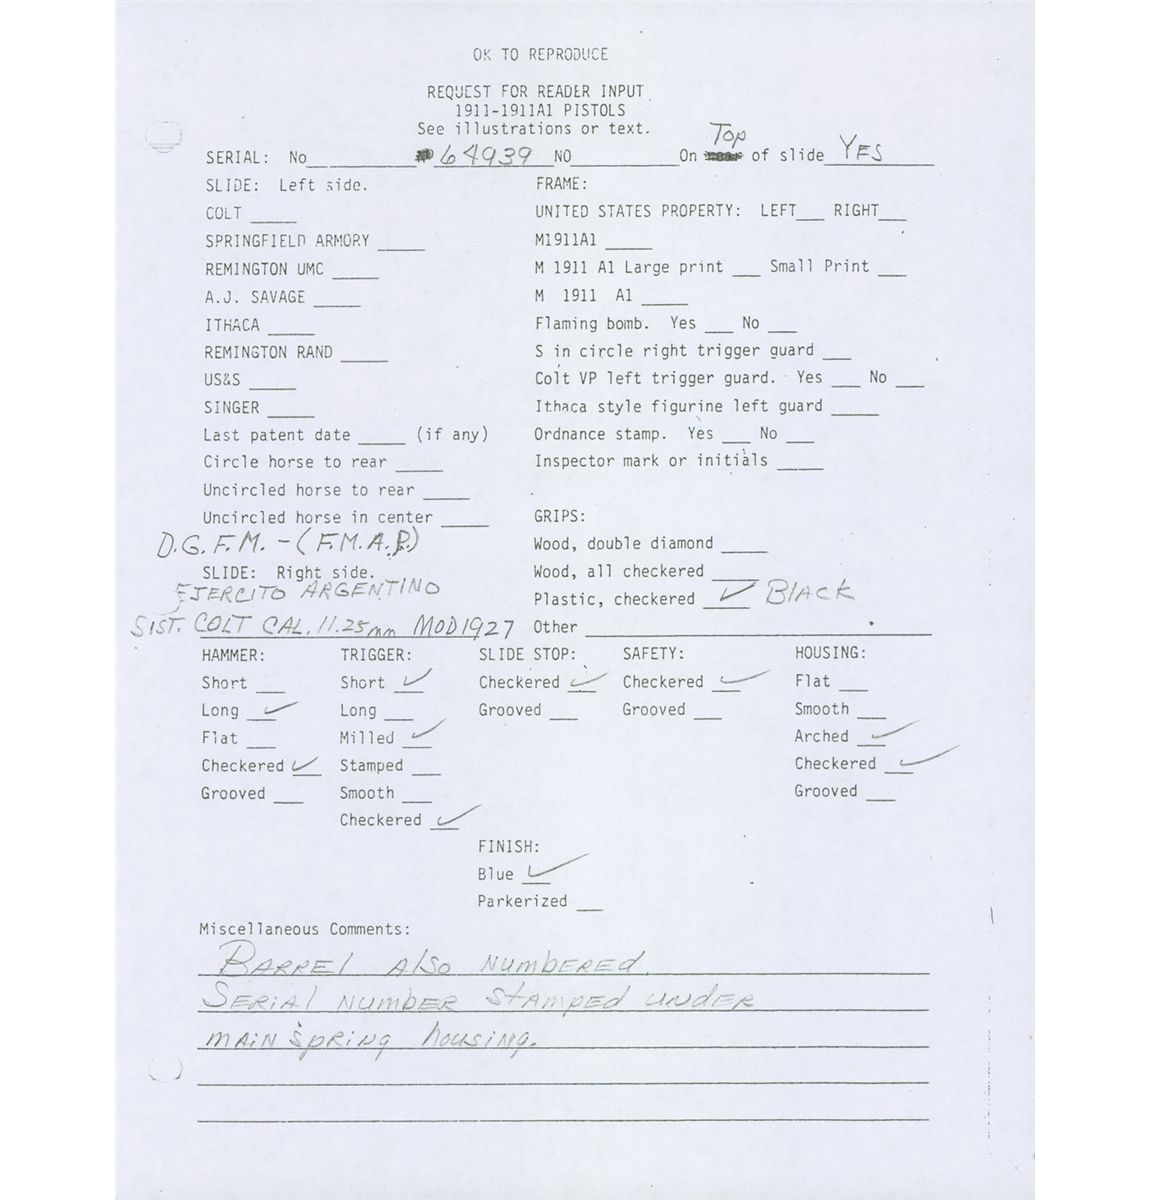 OK TO REPRODUCE
REQUEST FOR READER INPUT
1911-1911A1 PISTOLS
See illustrations or text.
SERIAL: No__________ 64939 NO__________ On Top of slide YES
SLIDE: Left side.
COLT _____
SPRINGFIELD ARMORY _____
REMINGTON UMC _____
A.J. SAVAGE _____
ITHACA _____
REMINGTON RAND _____
US&S _____
SINGER _____
Last patent date _____ (if any)
Circle horse to rear _____
Uncircled horse to rear _____
Uncircled horse in center _____
D.G.F.M. - (F.M.A.P.)
SLIDE: Right side.
EJERCITO ARGENTINO
SIST. COLT CAL. 11.25mm MOD 1927
FRAME:
UNITED STATES PROPERTY: LEFT___ RIGHT___
M1911A1 _____
M 1911 A1 Large print ___ Small Print ___
M 1911 A1 _____
Flaming bomb. Yes ___ No ___
S in circle right trigger guard ___
Colt VP left trigger guard. Yes ___ No ___
Ithaca style figurine left guard _____
Ordnance stamp. Yes ___ No ___
Inspector mark or initials _____
GRIPS:
Wood, double diamond _____
Wood, all checkered _____
Plastic, checkered __✓__ BLACK
Other _____
HAMMER:
Short ___
Long _✓_
Flat ___
Checkered _✓_
Grooved ___
TRIGGER:
Short _✓_
Long ___
Milled _✓_
Stamped ___
Smooth ___
Checkered _✓_
SLIDE STOP:
Checkered _✓_
Grooved ___
SAFETY:
Checkered _✓_
Grooved ___
HOUSING:
Flat ___
Smooth ___
Arched _✓_
Checkered _✓_
Grooved ___
FINISH:
Blue _✓_
Parkerized ___
Miscellaneous Comments:
BARREL Also NUMBERED.
SERIAL NUMBER STAMPED UNDER
MAIN SPRING housing.